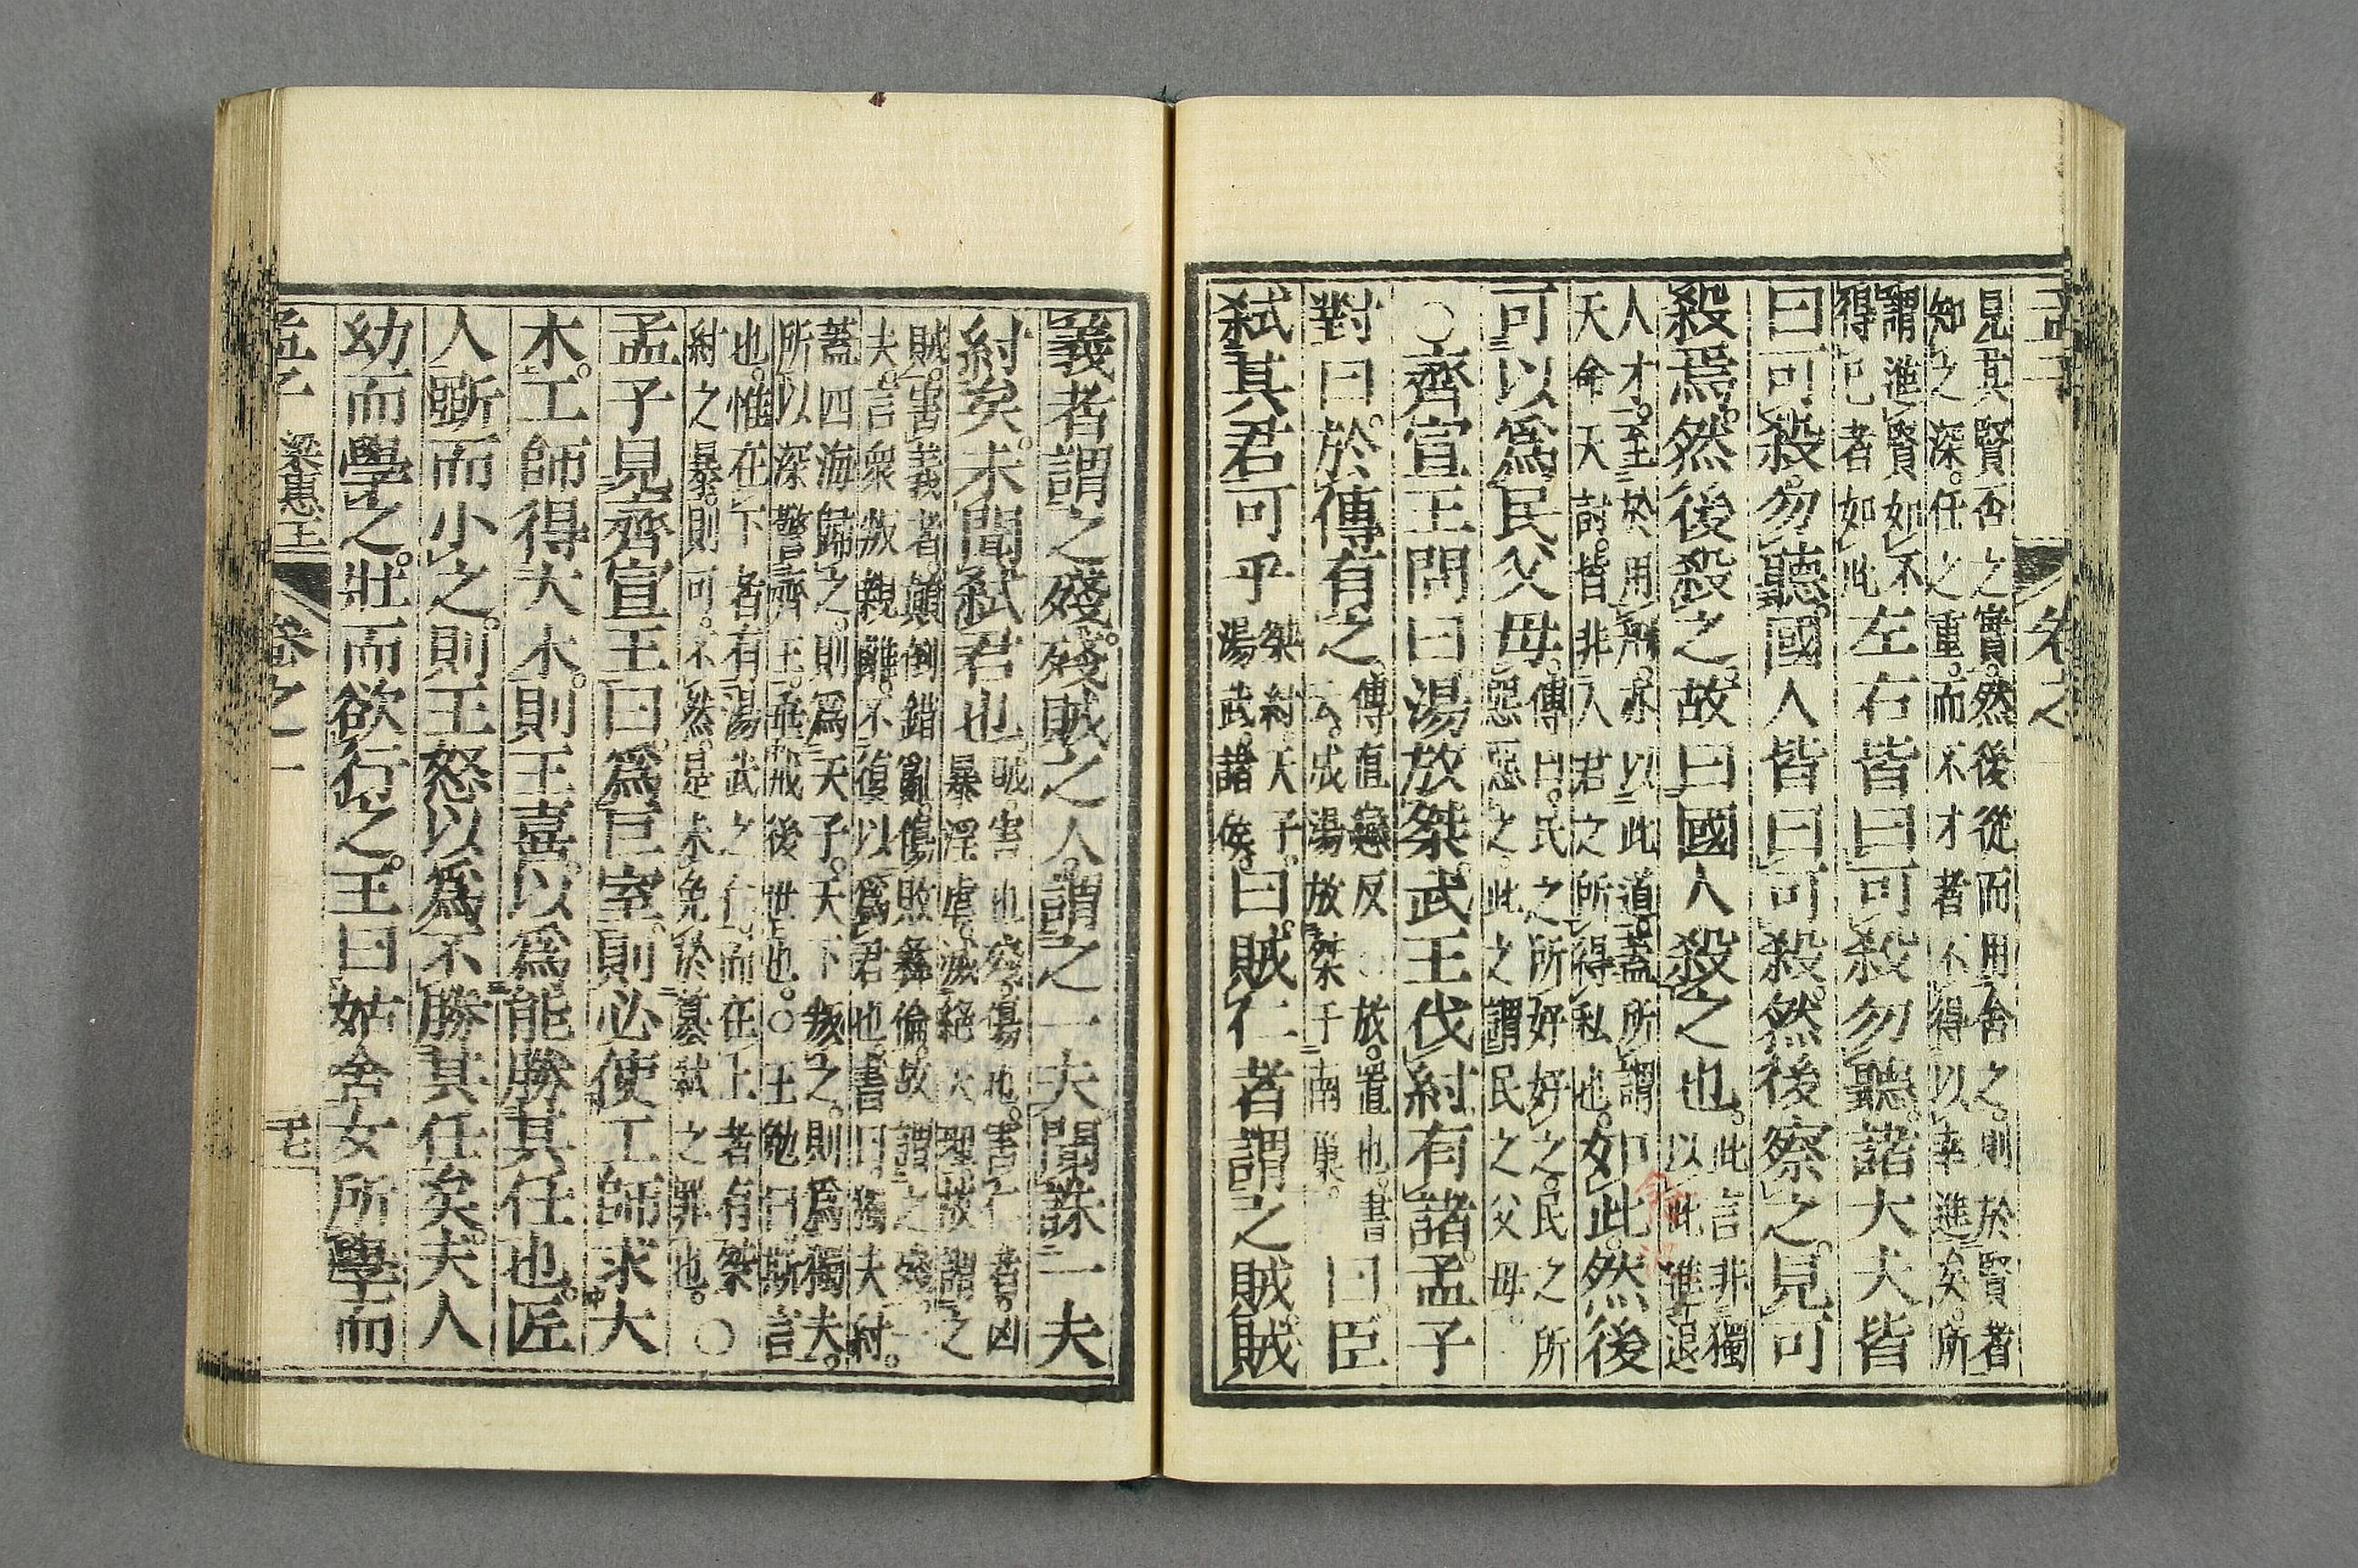 孟子 卷之
見其賢否之實。然後從而用舍之。則於賢者
知之深。任之重。而不才者不得以幸進矣。所
謂進賢如不
得已者如此
左右皆曰可殺勿聽。諸大夫皆
曰可殺。勿聽。國人皆曰可殺。然後察之。見可
殺焉。然後殺之。故曰國人殺之也。
此言非獨
以此進退
人才。至於用刑。亦以此道。蓋所謂
天命天討。皆非人君之所得私也。
如此。然後
可以爲民父母。
傳曰。民之所好好之。民之所
惡惡之。此之謂民之父母。
○齊宣王問曰湯放桀。武王伐紂。有諸。孟子
對曰。於傳有之。
傳直戀反○放。置也。書
云。成湯放桀于南巢。
曰。臣
弑其君可乎
桀紂。天子。
湯武。諸侯。
曰。賊仁者謂之賊。賊
義者謂之殘。殘賊之人。謂之一夫。聞誅一夫
紂矣。未聞弑君也
賊。害也。殘。傷也。害仁者。凶
暴淫虐。滅絶天理。故謂之
賊。害義者。顛倒錯亂。傷敗彝倫。故謂之殘。一
夫。言衆叛親離。不復以爲君也。書曰獨夫紂。
蓋四海歸之。則爲天子。天下叛之。則爲獨夫。
所以深警齊王。垂戒後世也。○王勉曰。斯言
也。惟在下者有湯武之仁。而在上者有桀
紂之暴。則可。不然。是未免於簒弑之罪也。
○
孟子見齊宣王曰。爲巨室。則必使工師求大
木。工師得大木。則王喜。以爲能勝其任也。匠
人斲而小之。則王怒以爲不勝其任矣。夫人
幼而學之。壯而欲行之。王曰姑舍女所學而
孟子 梁惠王 卷之一 廿七